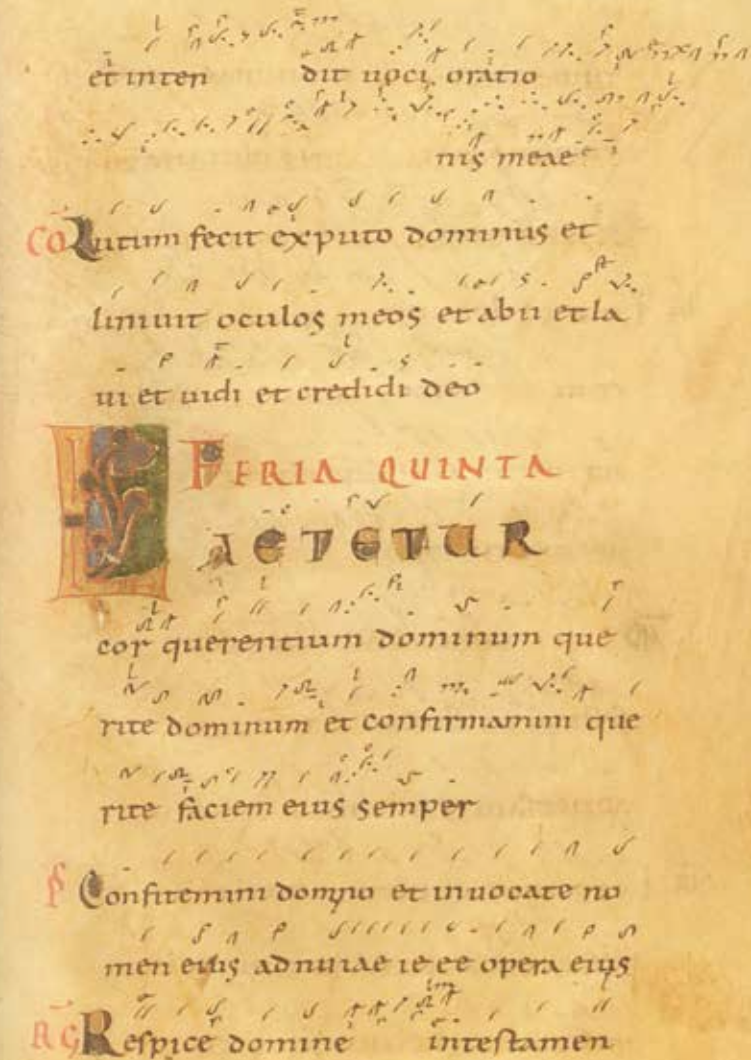 et inten dit uoci oratio
nis meae
CŌ Lutum fecit exputo dominus et
liniuit oculos meos et abii et la
ui et uidi et credidi deo
FERIA QUINTA
LAETETUR
cor querentium dominum que
rite dominum et confirmamini que
rite faciem eius semper
PS Confitemini domino et inuocate no
men eius adnunae ie ee opera eius
RG Respice domine in testamen